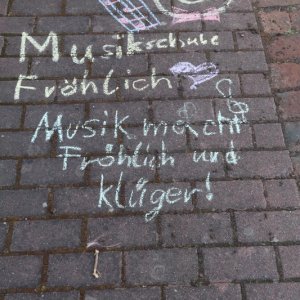 Musikschule
Fröhlich
Musik macht
Fröhlich und
klüger!